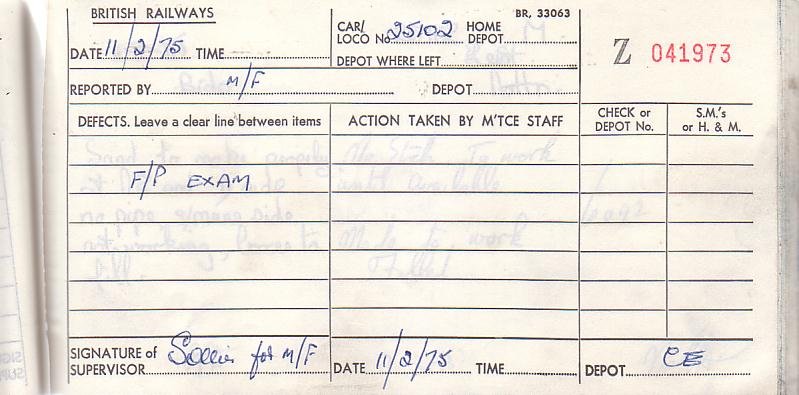 BRITISH RAILWAYS
BR, 33063
DATE 11/2/75 TIME
CAR/ LOCO No. 25102 HOME DEPOT
Z 041973
DEPOT WHERE LEFT
REPORTED BY M/F DEPOT
DEFECTS. Leave a clear line between items
ACTION TAKEN BY M'TCE STAFF
CHECK or DEPOT No.
S.M.'s or H. & M.
F/P EXAM
SIGNATURE of SUPERVISOR for M/F
DATE 11/2/75 TIME
DEPOT CE